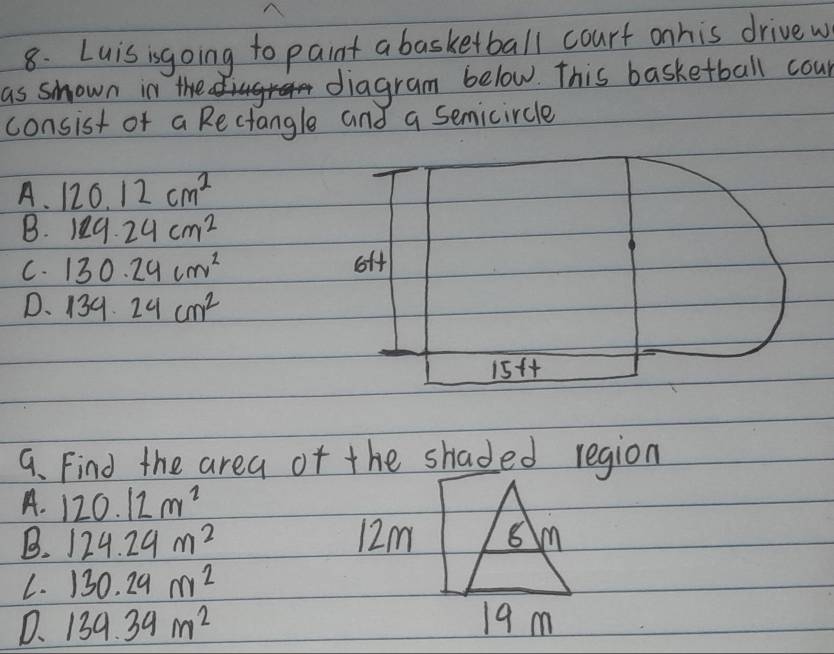 8. Luis is going to paint a basketball court on his drivew
as shown in the diagram below. This basketball cour
consist of a Rectangle and a Semicircle
A. 120.12 cm²
B. 129.24 cm²
C. 130.24 cm²
D. 139.24 cm²
6ft
15ft
9. Find the area of the shaded region
A. 120.12 m²
B. 124.24 m²
C. 130.24 m²
D. 139.39 m²
12m
6 m
19 m